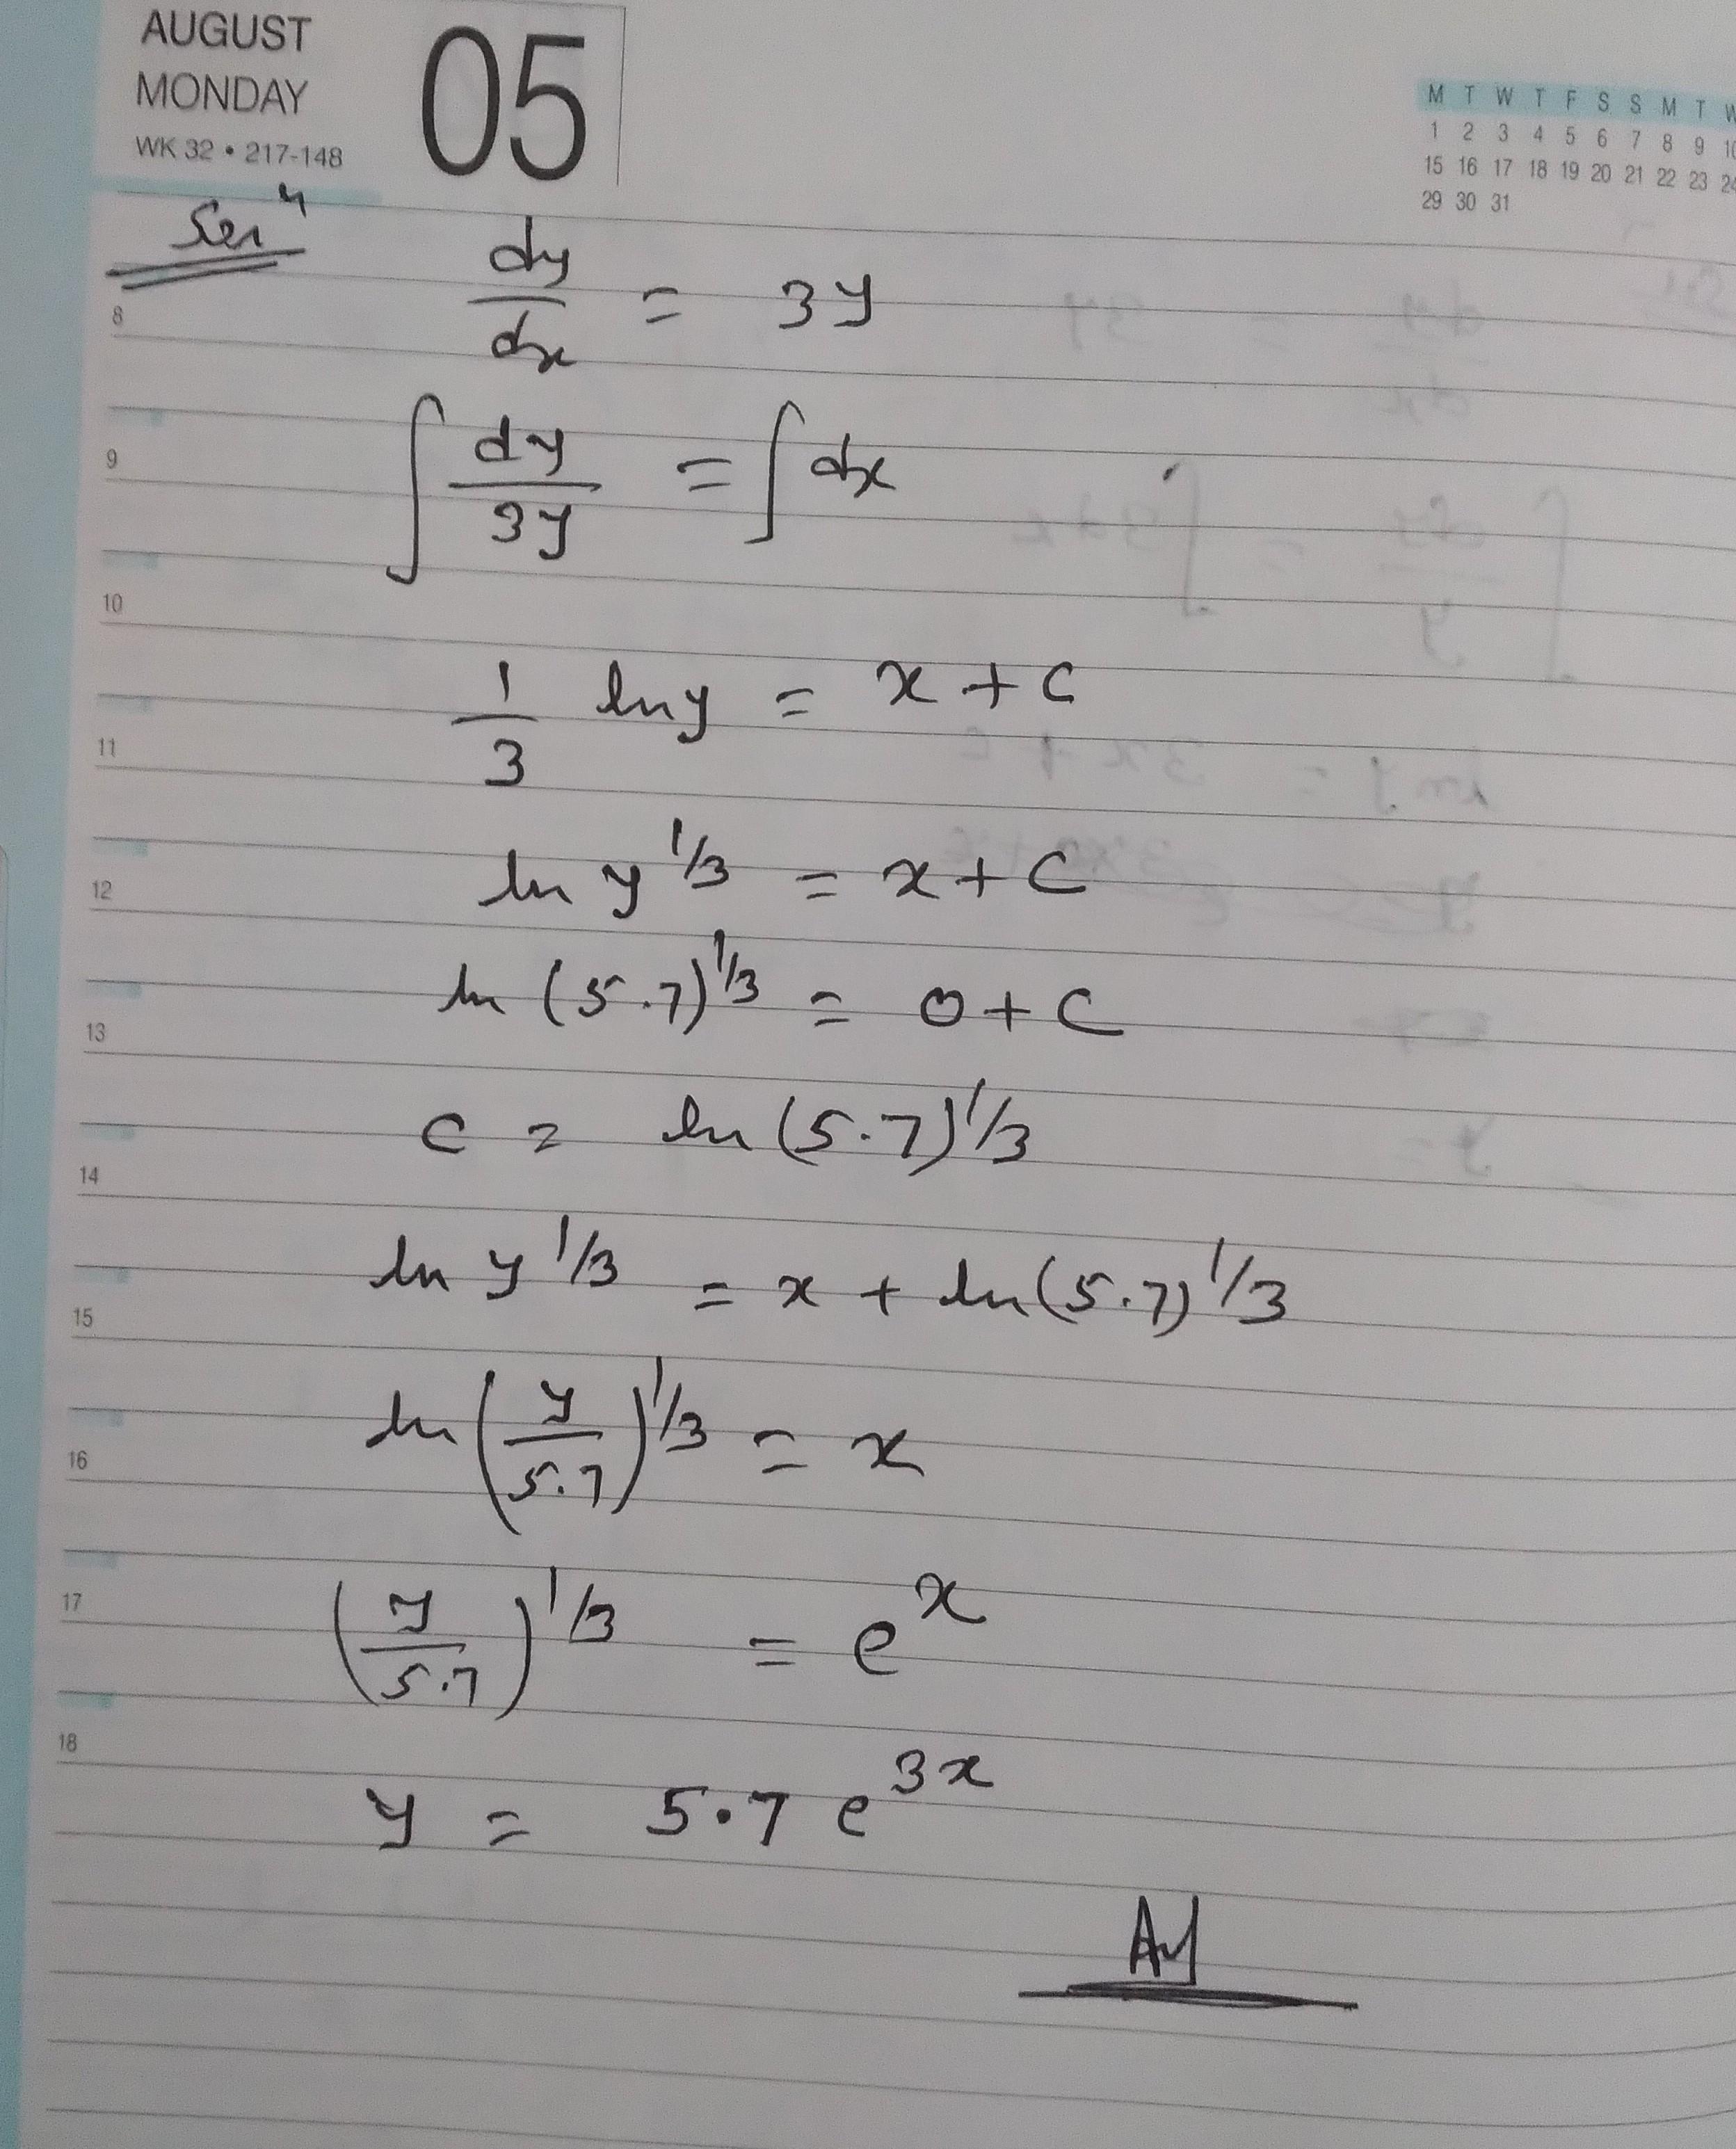 AUGUST
MONDAY
WK 32 • 217-148
05
M T W T F S S M T W
1 2 3 4 5 6 7 8 9 10
15 16 17 18 19 20 21 22 23 24
29 30 31
Solⁿ
dy/dx = 3y
8
∫ dy/3y = ∫ dx
9
10
1/3 ln y = x + c
11
ln y^1/3 = x + C
12
ln (5.7)^1/3 = 0 + C
13
C = ln (5.7)^1/3
14
ln y^1/3 = x + ln (5.7)^1/3
15
ln (y/5.7)^1/3 = x
16
(y/5.7)^1/3 = e^x
17
18
y = 5.7 e^3x